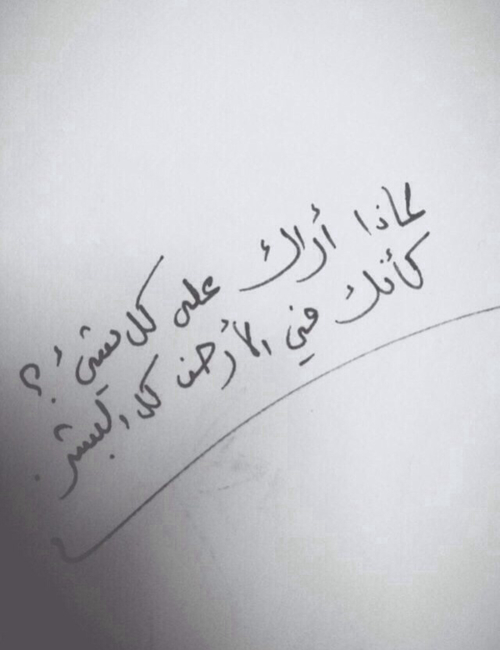 لماذا أراك على كل شيءٍ ؟
كأنك في الأرض كل البشر.